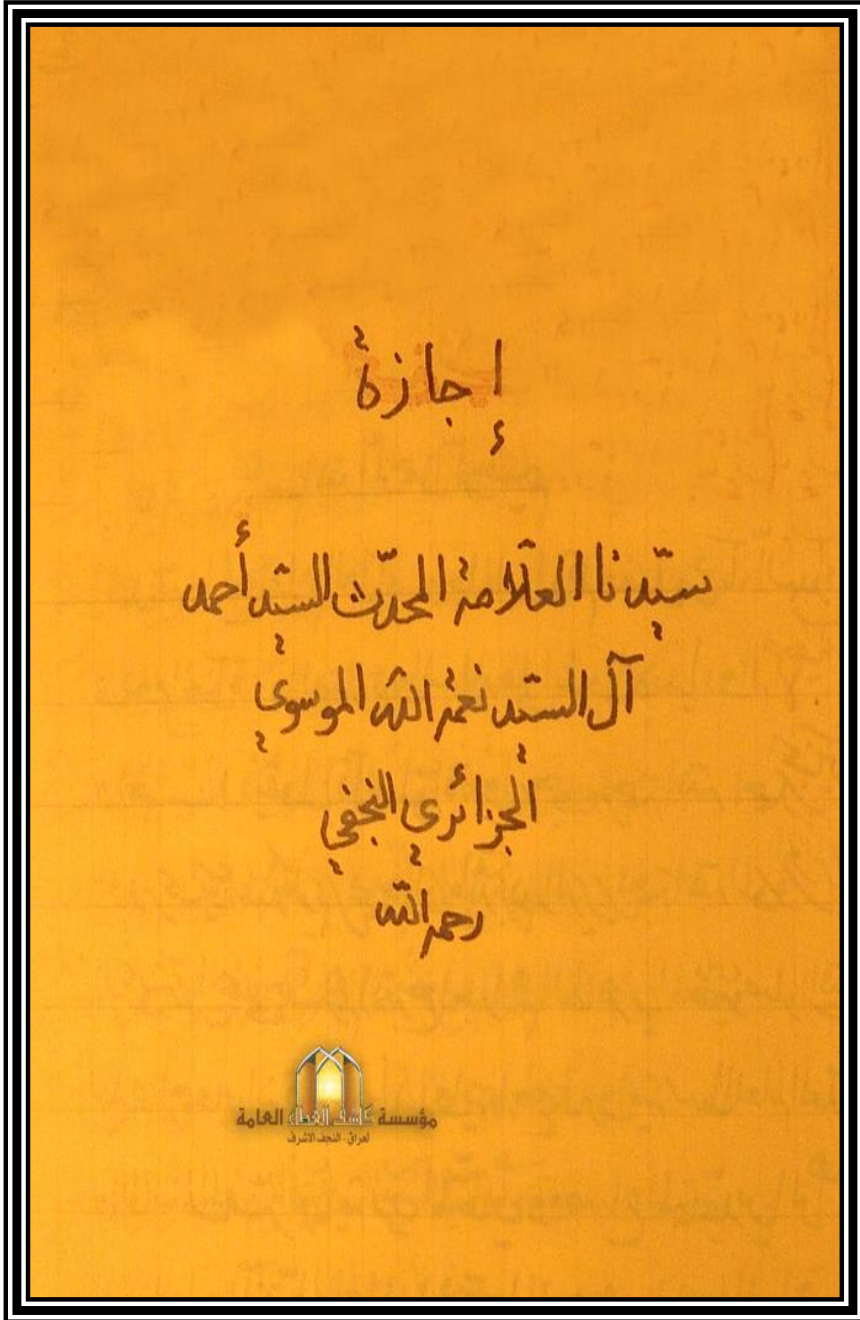 إجازة
سيّدنا العلّامة المحدّث السيّد أحمد
آل السيّد نعمة الله الموسوي
الجزائري النجفي
رحمه الله
مؤسسة كاشف الغطاء العامة
لعراق - النجف الاشرف